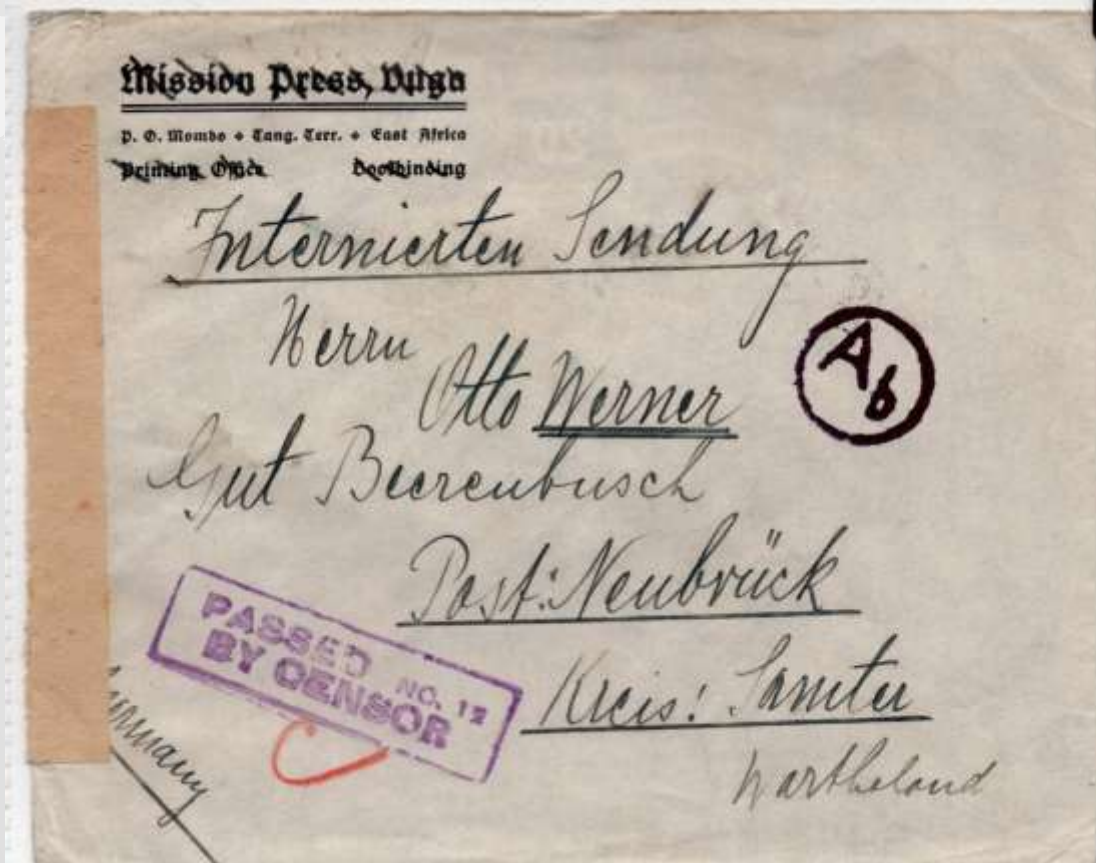 Mission Press, Vuga
P. O. Mombo + Tang. Terr. + East Africa
Printing Office Bookbinding
Internierten Sendung
Herrn
Otto Werner
Gut Beerenbusch
Post: Neubrück
Kreis: Samter
Wartheland
Ab
PASSED NO. 12
BY CENSOR